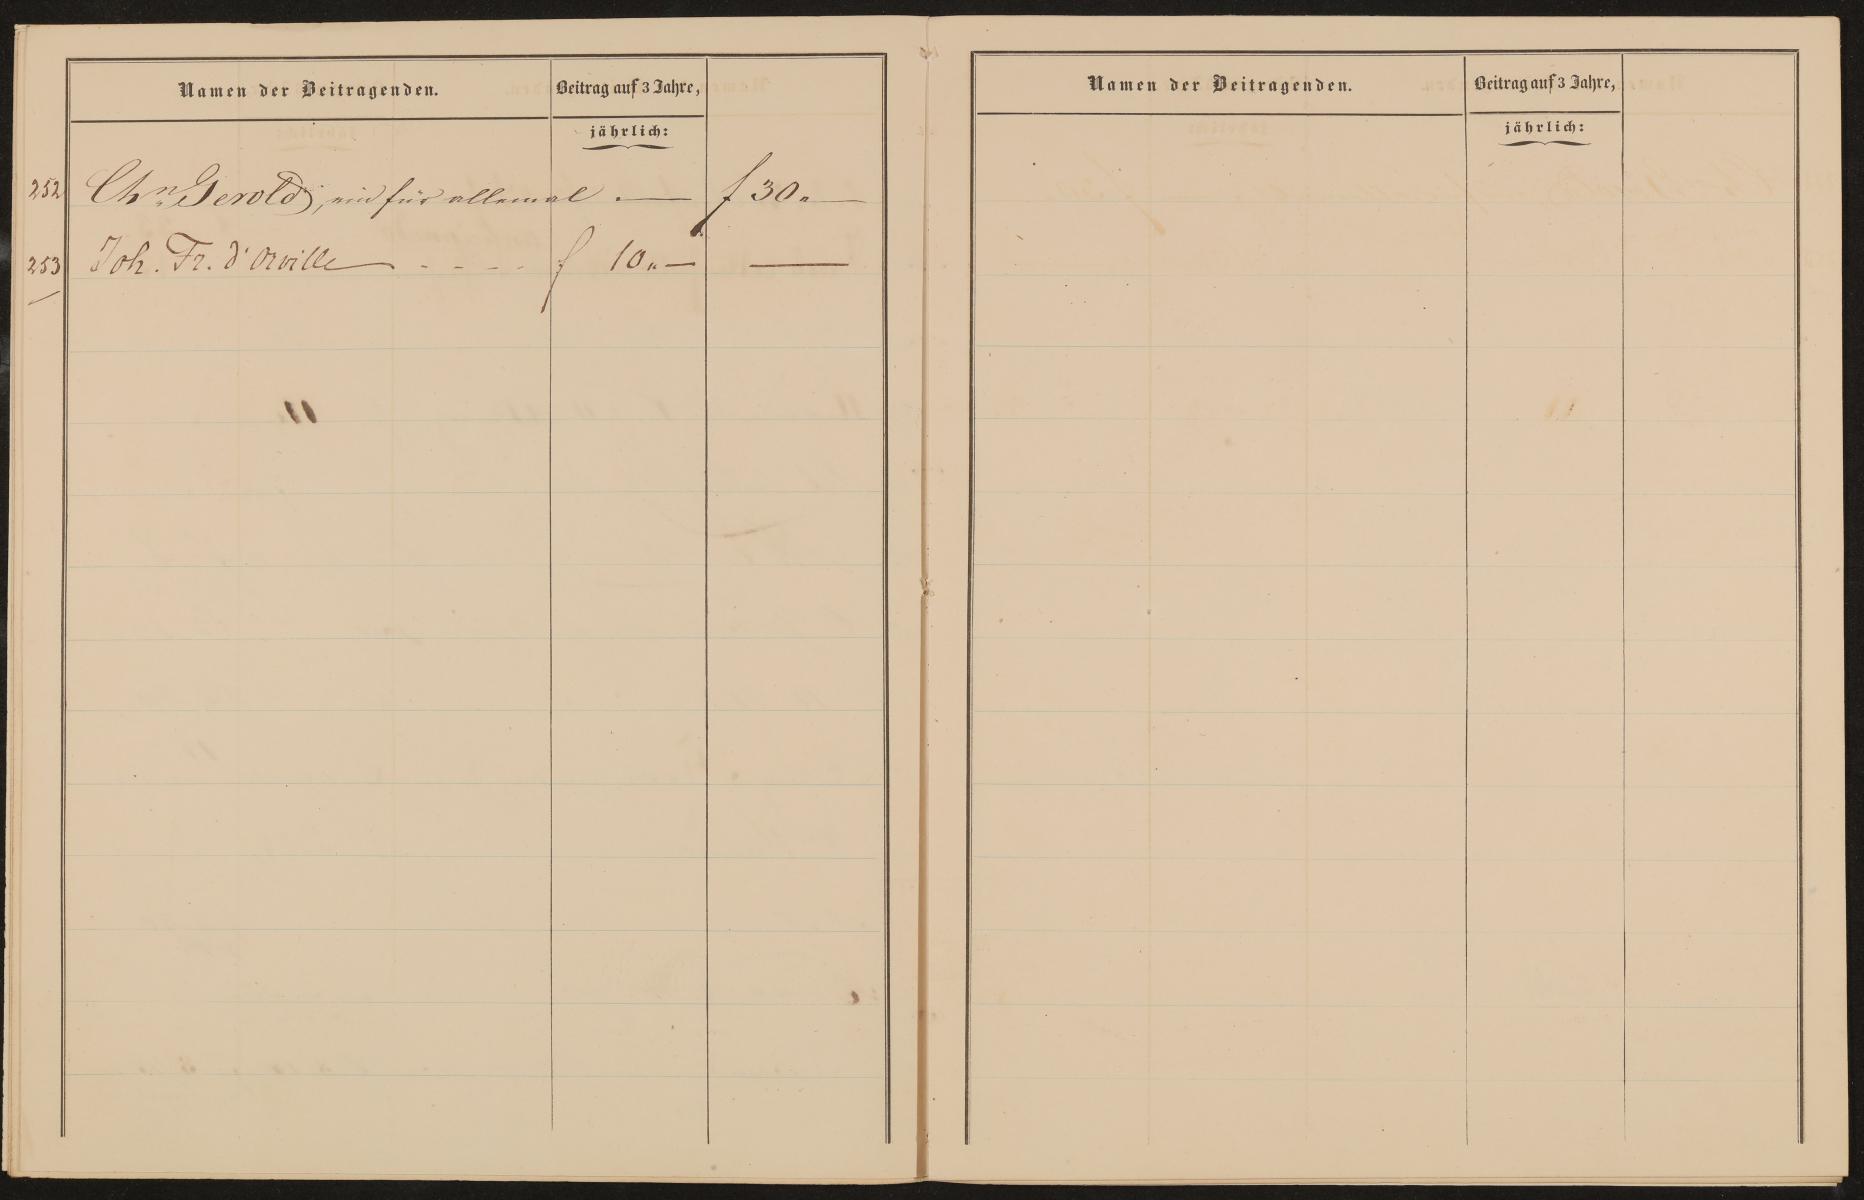 Namen der Beitragenden.
Beitrag auf 3 Jahre,
jährlich:
252 Chn Gerold, ein für allemal . — f 30 „ —
253 Joh. Fr. d'Orville — - - - - f 10 „ — —
Namen der Beitragenden.
Beitrag auf 3 Jahre,
jährlich: